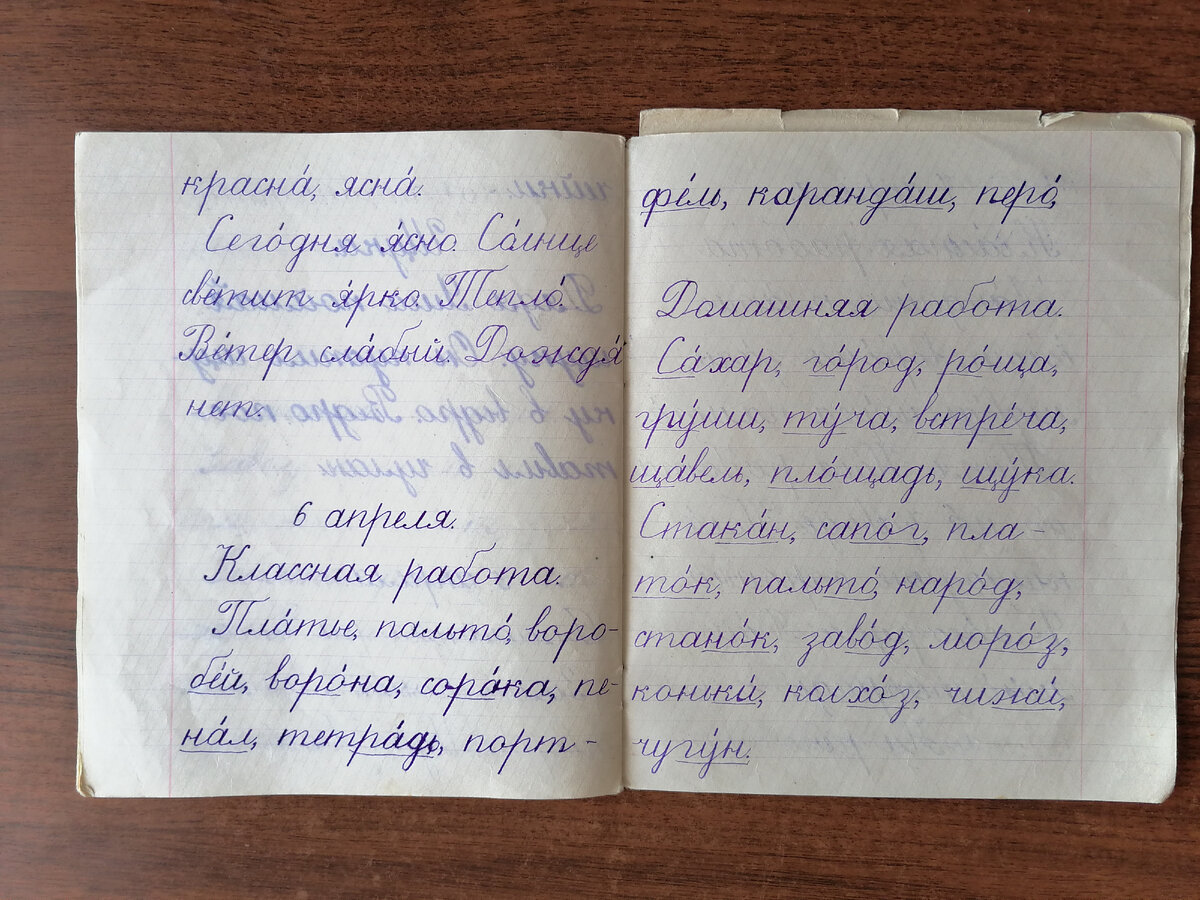 красна́, ясна́.
Сего́дня я́сно. Со́лнце
све́тит я́рко. Тепло́.
Ве́тер сла́бый. Дождя́
нет.
6 апреля.
Классная работа.
Пла́тье, пальто́, воро-
бе́й, воро́на, соро́ка, пе-
на́л, тетра́дь, порт-
фе́ль, каранда́ш, перо́.
Домашняя работа.
Са́хар, го́род, ро́ща,
гру́ши, ту́ча, встре́ча,
ща́вель, пло́щадь, щу́ка.
Стака́н, сапо́г, пла-
то́к, пальто́, наро́д,
стано́к, заво́д, моро́з,
коньки́, колхо́з, чижи́,
чугу́н.